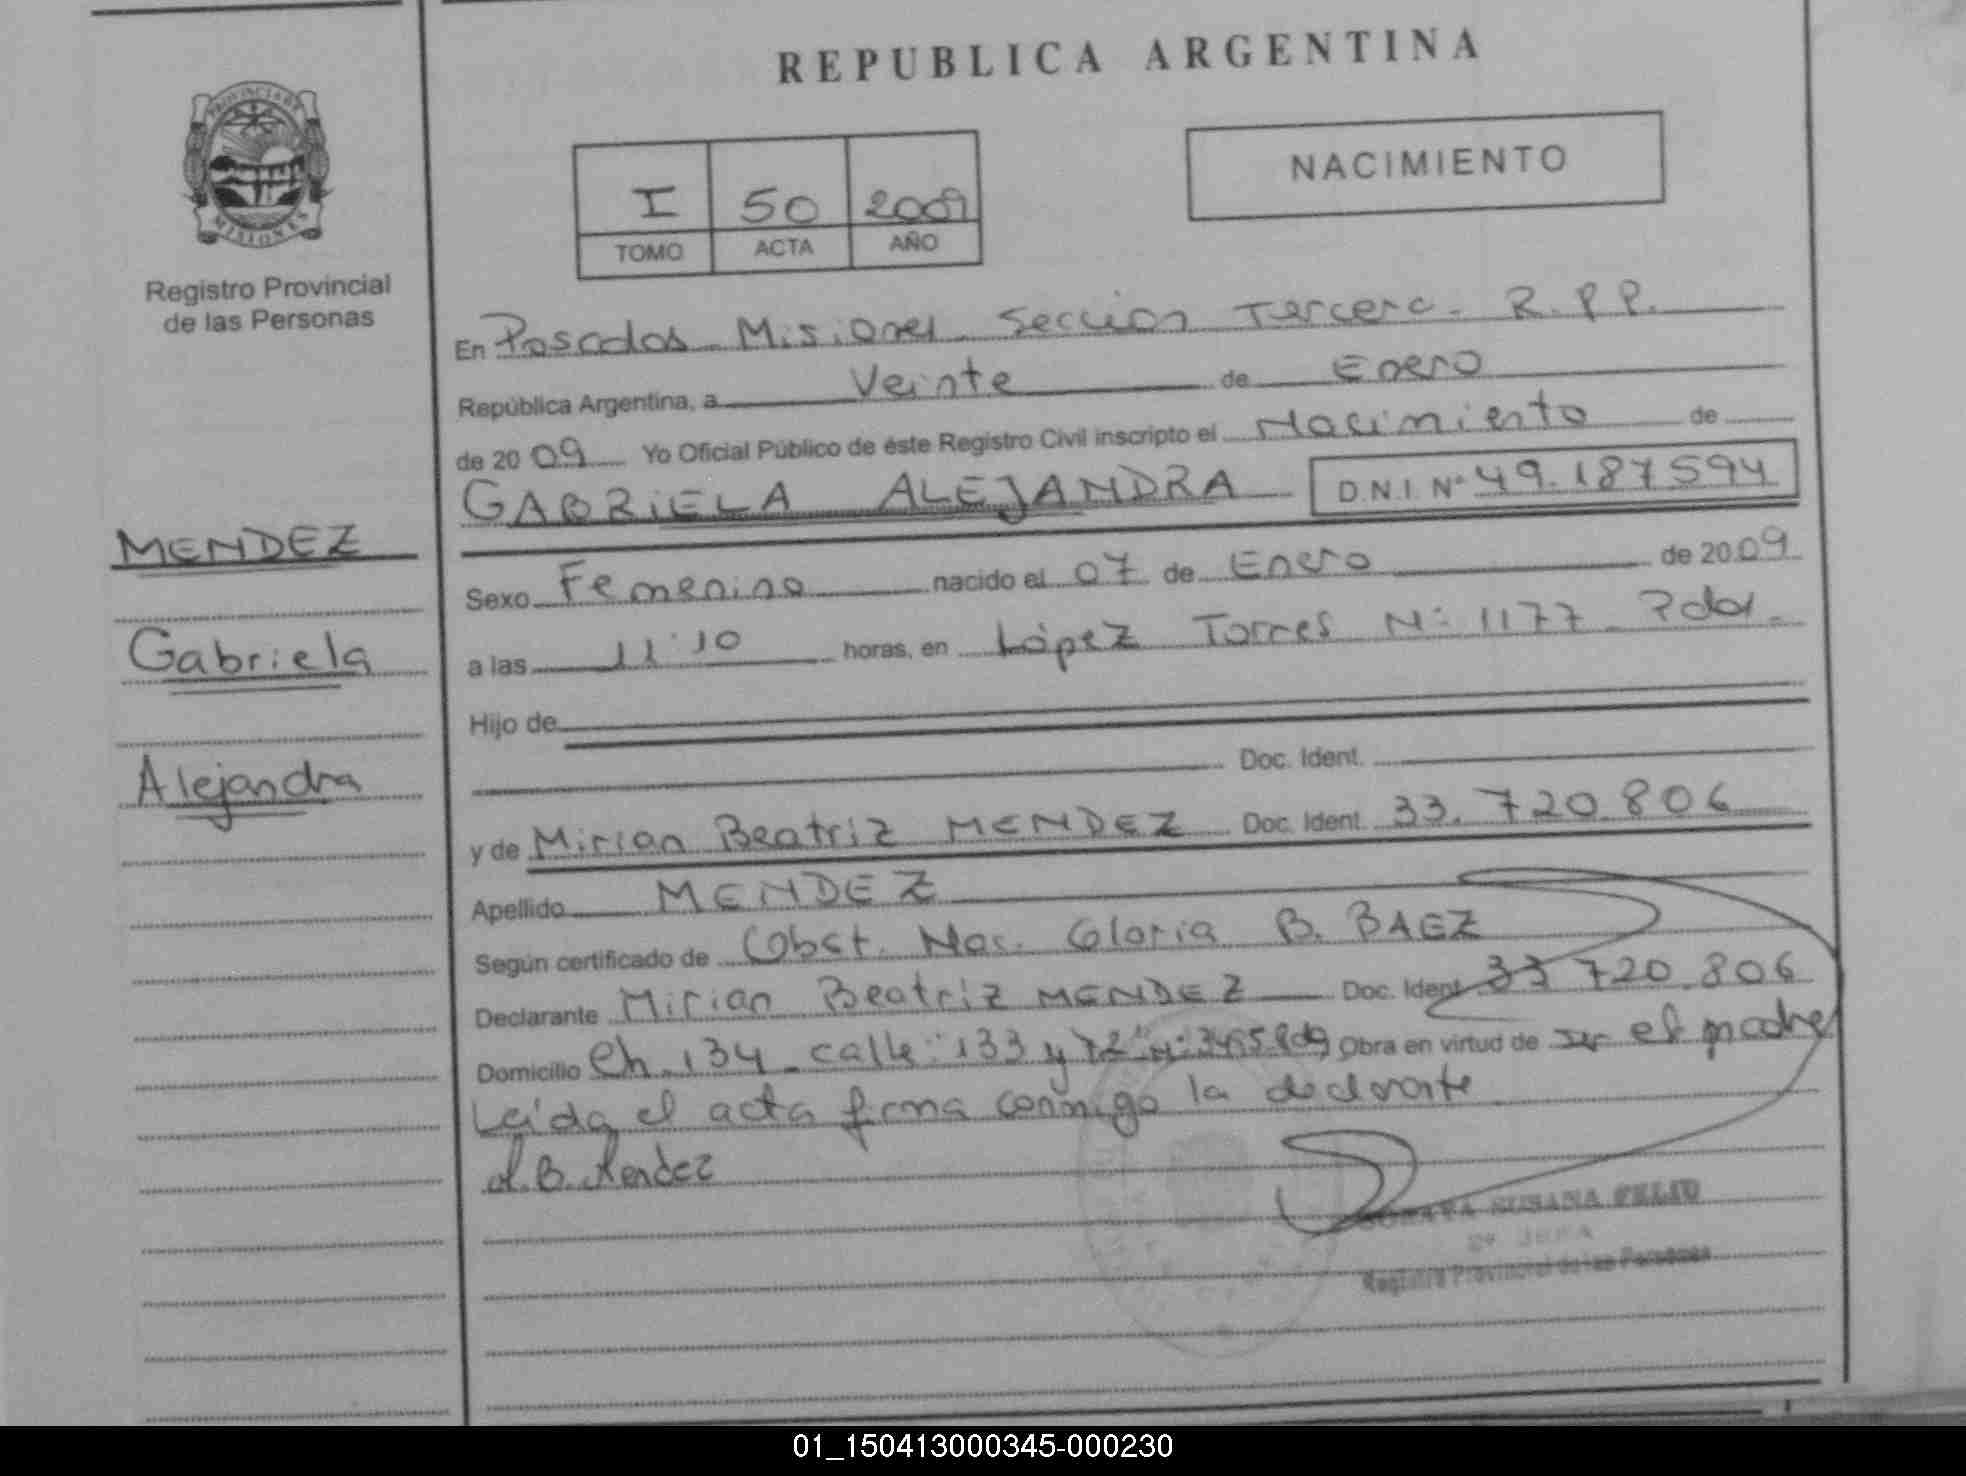 REPUBLICA ARGENTINA
PROVINCIA DE
MISIONES
Registro Provincial
de las Personas
I 50 2009
TOMO ACTA AÑO
NACIMIENTO
MENDEZ
Gabriela
Alejandra
En Posadas Misiones Sección Tercera. R.P.P.
República Argentina, a Veinte de Enero
de 2009 Yo Oficial Público de éste Registro Civil inscripto el Nacimiento de
GABRIELA ALEJANDRA D.N.I. Nº 49.187594
Sexo Femenino nacido el 07 de Enero de 2009
a las 11:10 horas, en López Torres Nº 1177 Pdas.
Hijo de
Doc. Ident.
y de Mirian Beatriz MENDEZ Doc. Ident. 33.720.806
Apellido MENDEZ
Según certificado de Obst. Nac. Gloria B. BAEZ
Declarante Mirian Beatriz MENDEZ Doc. Ident. 33 720.806
Domicilio Ch. 134 calle: 133 y Obra en virtud de ser el madre
Leída el acta firma conmigo la declarante
M.B. Mendez
SUSANA FELIU
2º JEFA
Registro Provincial de las Personas
01_150413000345-000230